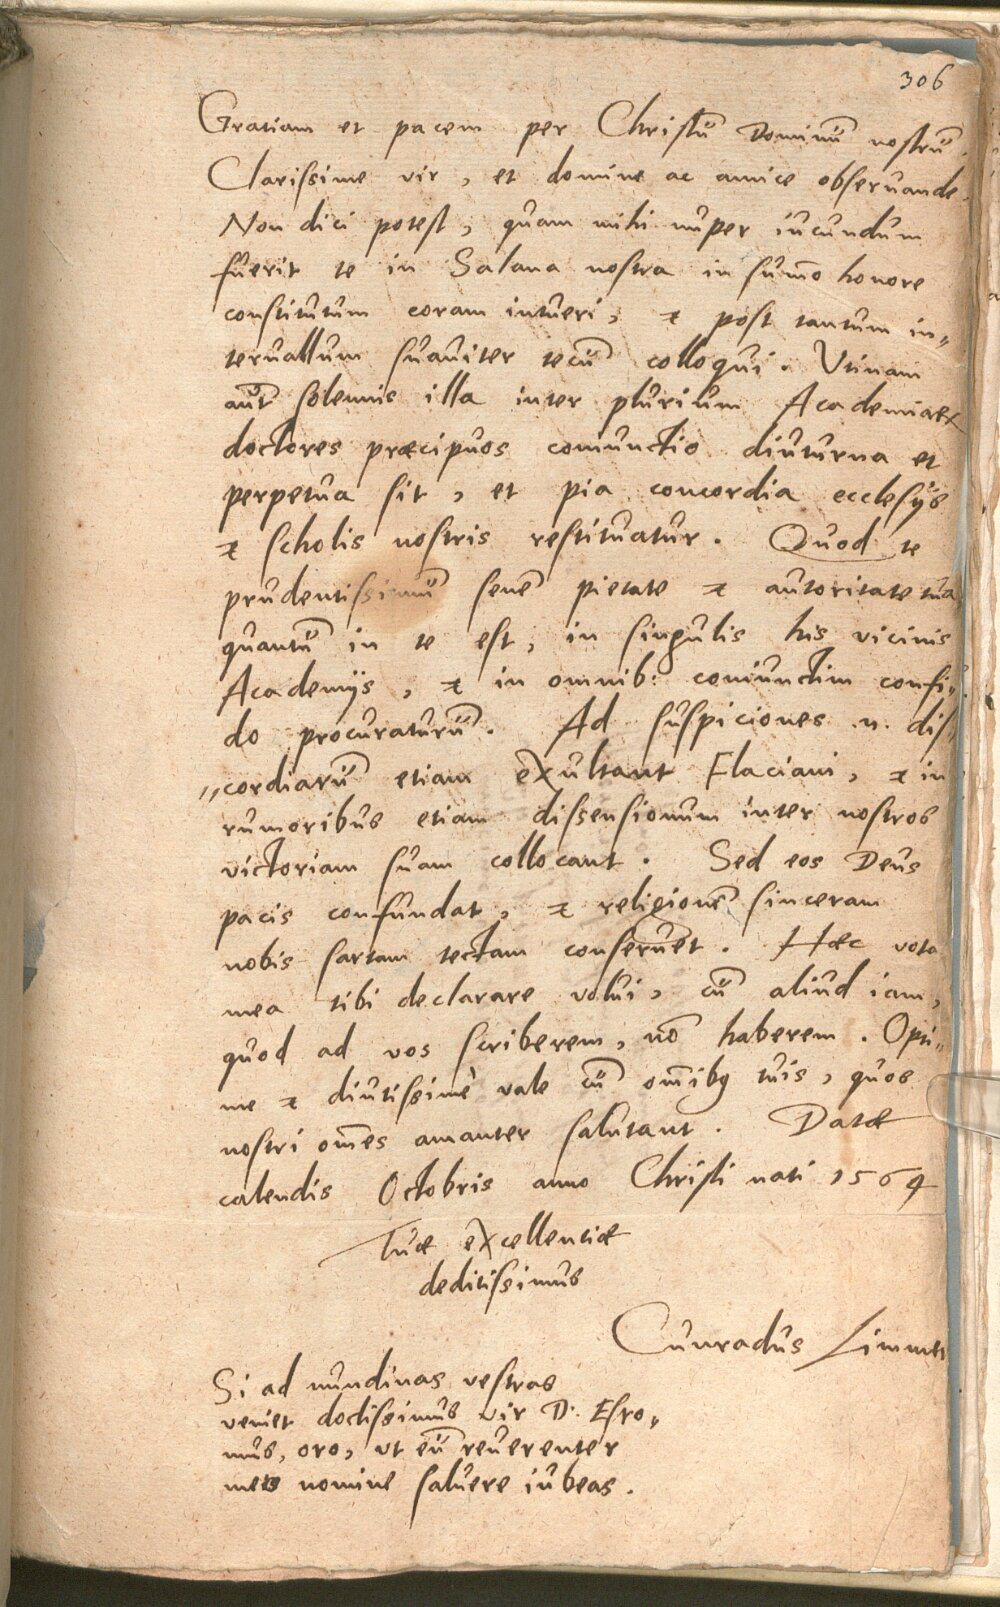 306
Gratiam et pacem per Christū Dominū nostrū.
Clarissime vir, et domine ac amice obseruande.
Non dici potest, quam mihi nuper iucundum
fuerit te in Salana nostra in sumō honore
constitutum coram intueri, & post tantum in„
teruallum suauiter tecū colloqui. Vtinam
aūt solennis illa inter plurium Academiarꝝ
doctores præcipuos coniunctio diuturna et
perpetua sit, et pia concordia ecclesijs
& scholis nostris restituatur. Quod te
prudentissimū senē pietate & autoritate tua
quantū in te est, in singulis his vicinis
Academijs, & in omnib: coniunctim confi„
do procuraturū. Ad suspiciones .n. dis„
„cordiarū etiam exultant Flaciani, & in
rumoribus etiam dissensionum inter nostros
victoriam suam collocant. Sed eos Deus
pacis confundat, & religionē sinceram
nobis sartam tectam conseruet. Hæc vota
mea tibi declarare volui, cū aliud iam,
quod ad vos scriberem, nō haberem. Opti„
me & diutissimè vale cū omībꝰ tuis, quos
nostri om̄es amanter salutant. Datæ
calendis Octobris anno Christi nati 1569
Tuæ excellentiæ
deditissimus
Cunradus
Si ad nundinas vestras
veniet doctissimus vir D. Esro„
mus, oro, vt eū reuerenter
meo nomine saluere iubeas.